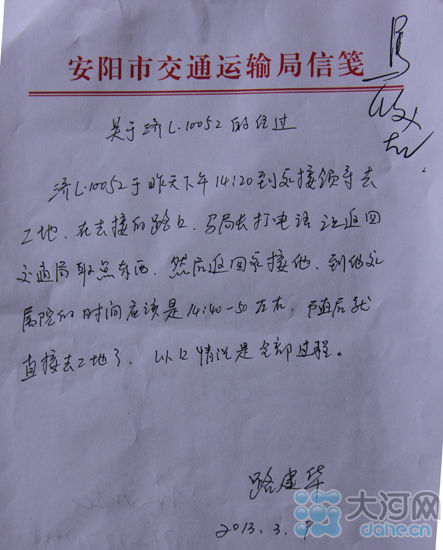 安阳市交通运输局信笺
关于济L.10052的经过
济L.10052于昨天下午14:20到家接领导去
工地、在去接的路上、马局长打电话让返回
交通局取点东西、然后返回家接他、到他家
属院的时间应该是14:40-50左右、随后就
直接去工地了、以上情况是全部过程。
路建华
2013.3.9
大河网
dahe.cn